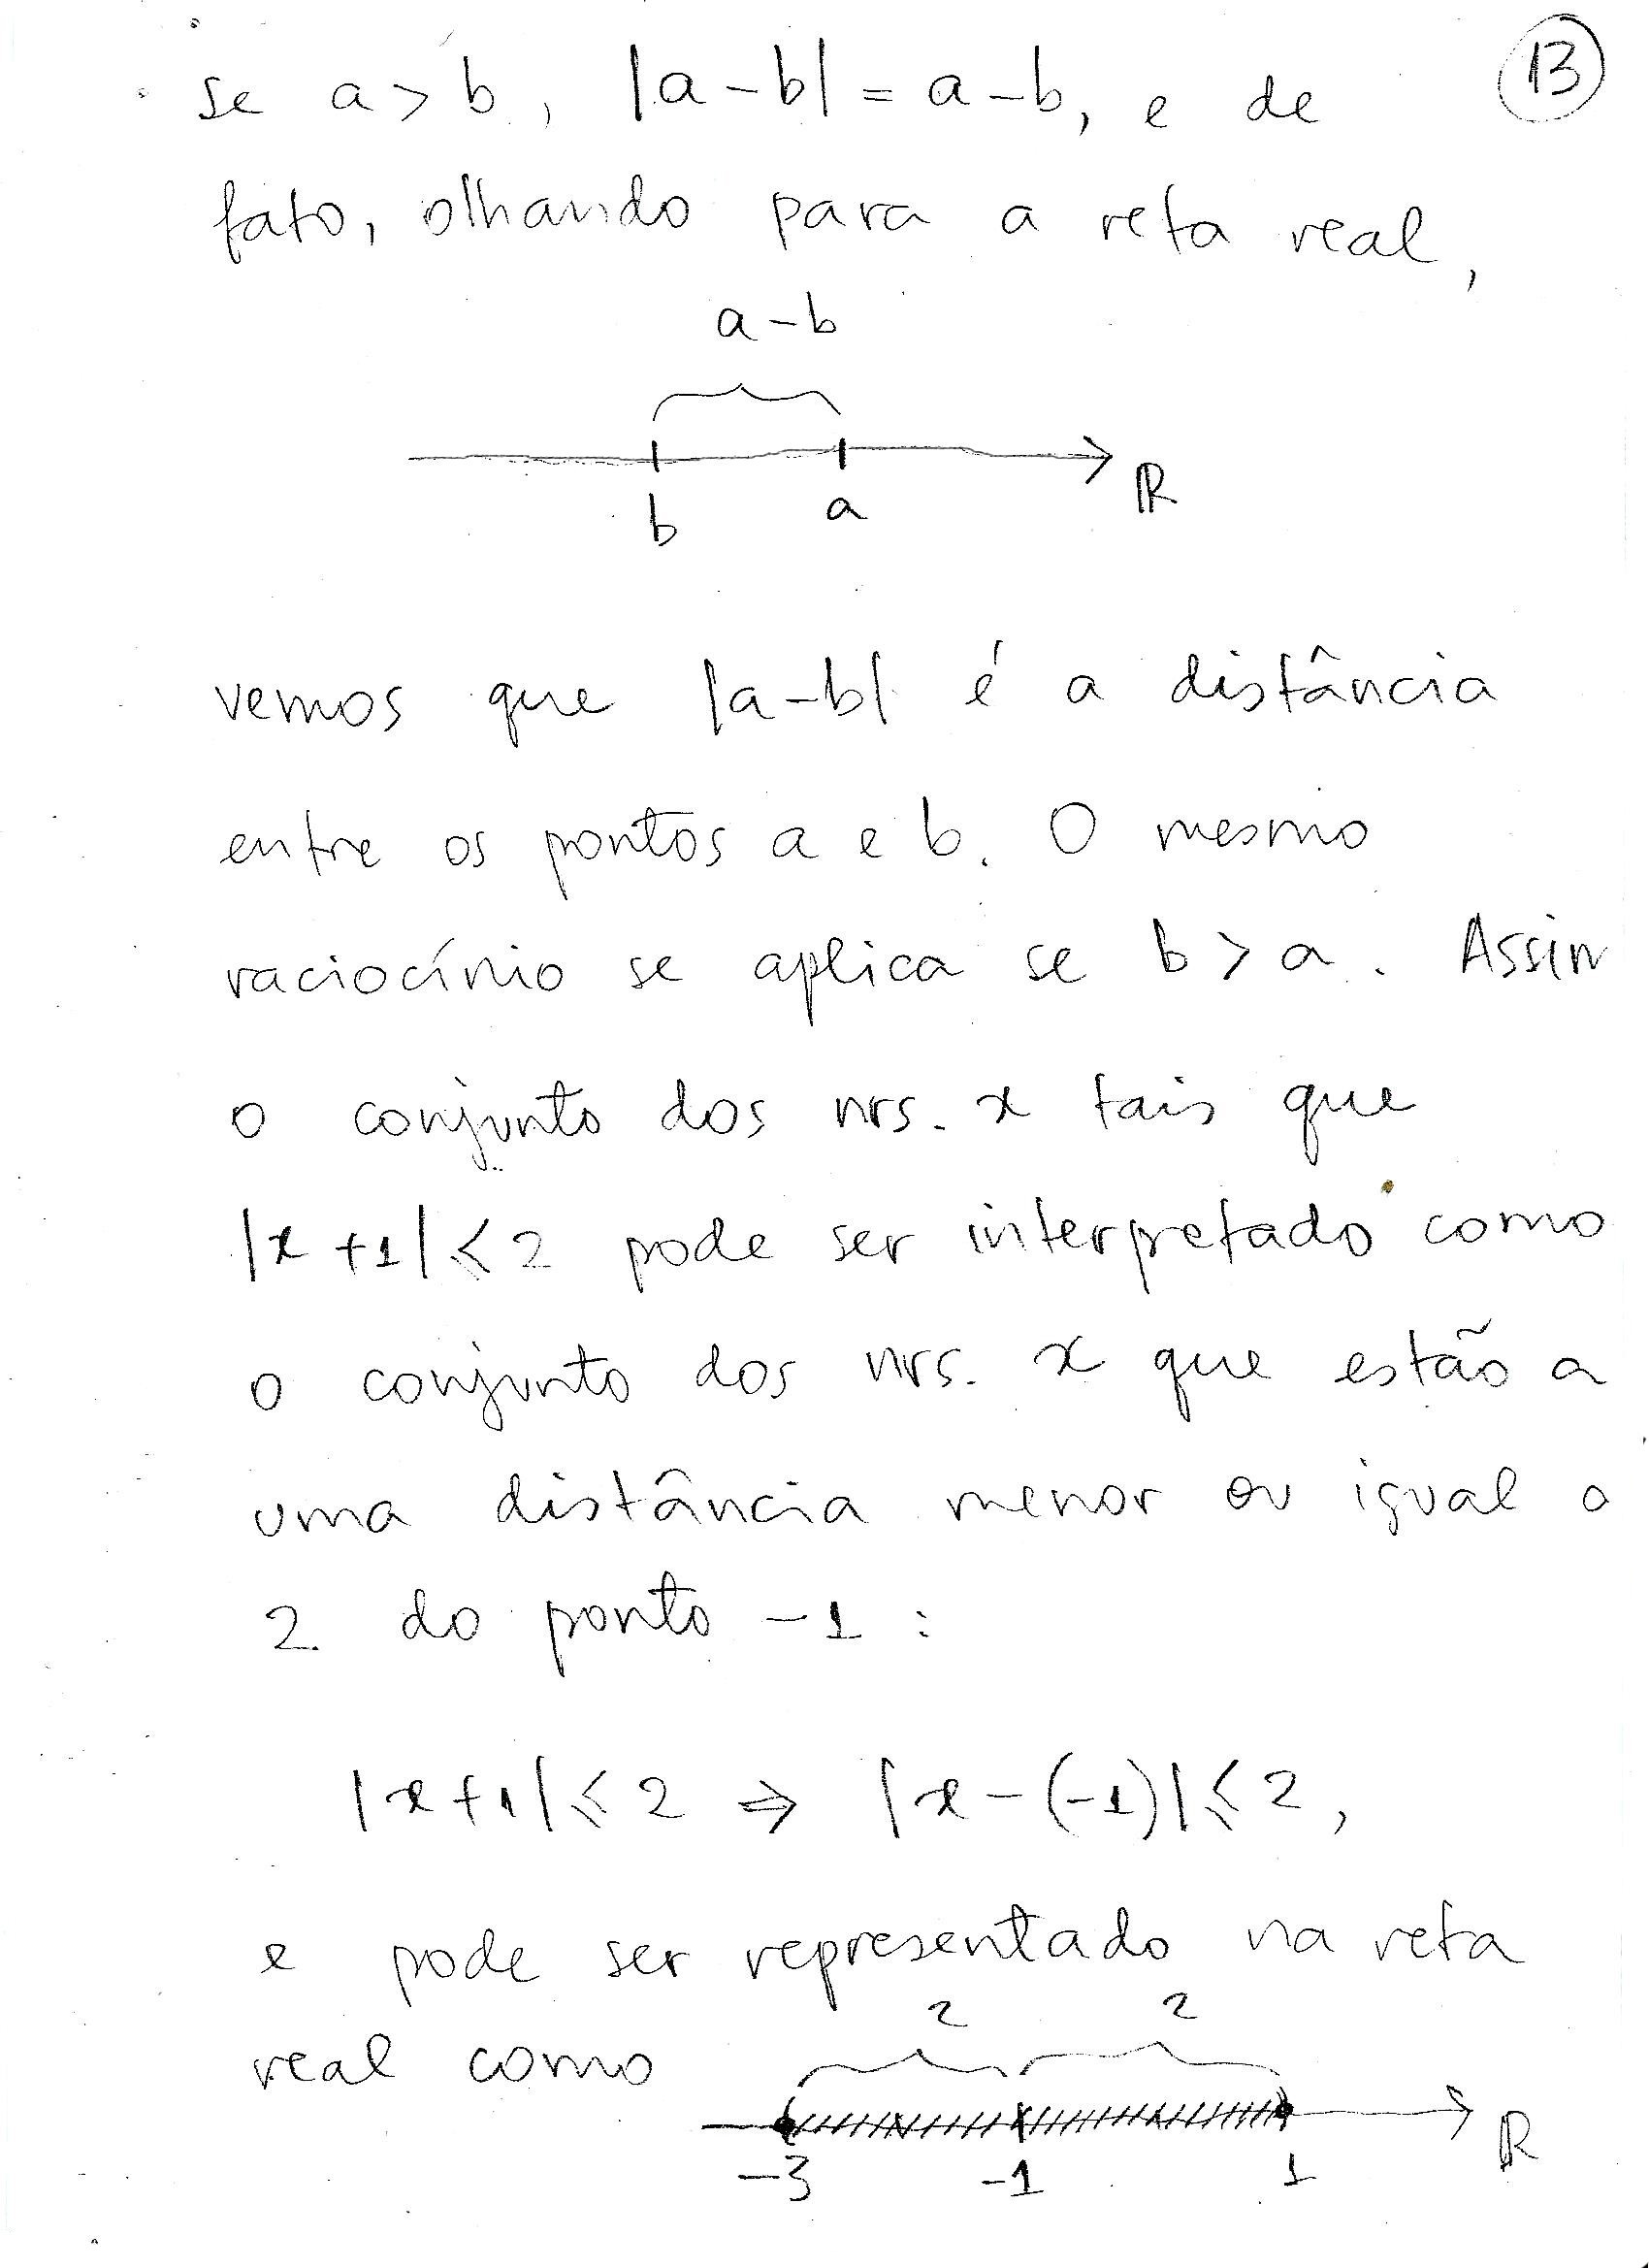 se a > b, |a-b| = a-b, e de
13
fato, olhando para a reta real,
a-b
b a ℝ
vemos que |a-b| é a distância
entre os pontos a e b. O mesmo
raciocínio se aplica se b > a. Assim
o conjunto dos nrs. x tais que
|x+1| ⩽ 2 pode ser interpretado como
o conjunto dos nrs. x que estão a
uma distância menor ou igual a
2 do ponto -1:
|x+1| ⩽ 2 ⇒ |x-(-1)| ⩽ 2,
e pode ser representado na reta
2 2
real como
-3 -1 1 ℝ